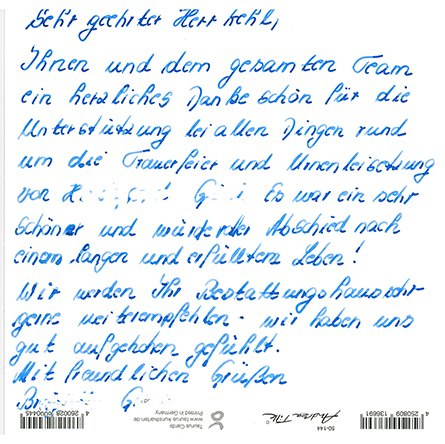 Sehr geehrter Herr Kehl,
Ihnen und dem gesamten Team
ein herzliches Dankeschön für die
Unterstützung bei allen Dingen rund
um die Trauerfeier und Urnenbeisetzung
von H G Es war ein sehr
schöner und würdevoller Abschied nach
einem langen und erfüllten Leben!
Wir werden Ihr Bestattungshaus sehr
gerne weiterempfehlen - wir haben uns
gut aufgehoben gefühlt.
Mit freundlichen Grüßen
B G
4 260028 000445
Taurus Cards
www.taurus-kunstkarten.de
Printed in Germany
50-144
4 250809 136691